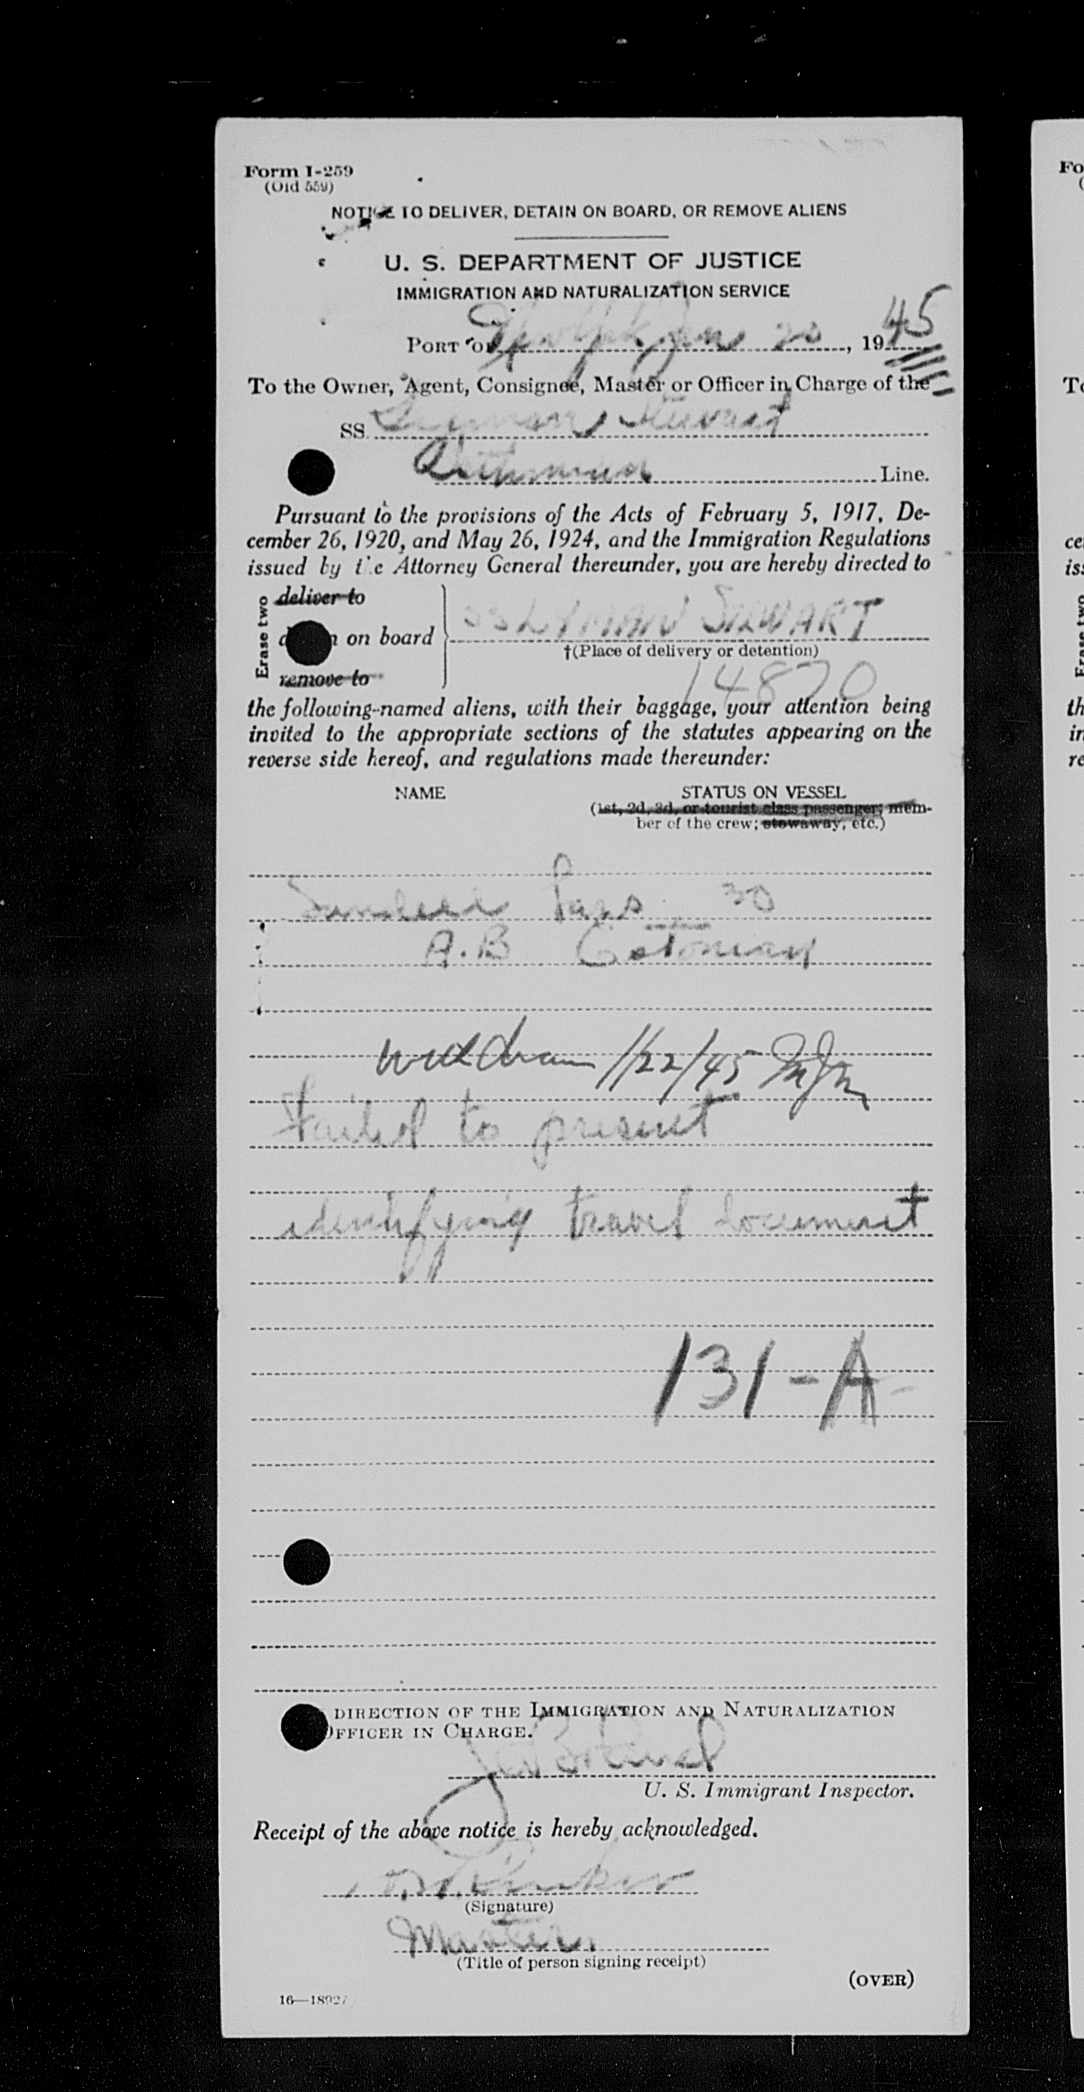 Form I-259
(Old 559)
NOTICE TO DELIVER, DETAIN ON BOARD, OR REMOVE ALIENS
U. S. DEPARTMENT OF JUSTICE
IMMIGRATION AND NATURALIZATION SERVICE
PORT OF Norfolk, Jan 20, 1945
To the Owner, Agent, Consignee, Master or Officer in Charge of the
SS Lyman Stewart
Line.
Pursuant to the provisions of the Acts of February 5, 1917, De-
cember 26, 1920, and May 26, 1924, and the Immigration Regulations
issued by the Attorney General thereunder, you are hereby directed to
Erase two
deliver to
on board
SS LYMAN STEWART
†(Place of delivery or detention)
remove to
14870
the following-named aliens, with their baggage, your attention being
invited to the appropriate sections of the statutes appearing on the
reverse side hereof, and regulations made thereunder:
NAME STATUS ON VESSEL
(1st, 2d, 3d, or tourist class passenger; mem-
ber of the crew; stowaway, etc.)
30
A.B Estonian
1/22/45
Failed to present
identifying travel document
131-A
DIRECTION OF THE IMMIGRATION AND NATURALIZATION
OFFICER IN CHARGE.
U. S. Immigrant Inspector.
Receipt of the above notice is hereby acknowledged.
(Signature)
Master
(Title of person signing receipt)
(OVER)
16—18927
Fo